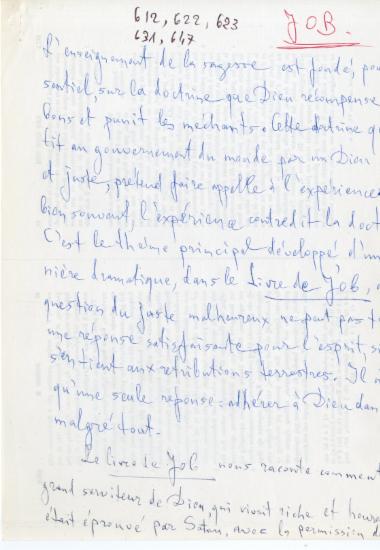 612, 622, 623
631, 647
JOB.
L'enseignement de la sagesse est fondé, pour
sentiel, sur la doctrine que Dieu récompense
bons et punit les méchants. Cette doctrine qu
tit au gouvernement du monde par un Dieu
et juste, prétend faire appelle à l'expérience
bien souvant, l'expérience contredit la doct
C'est le thème principal développé d'un
nière dramatique, dans le Livre de Job,
question du juste malheureux ne peut pas t
une réponse satisfaisante pour l'esprit, si
s'en tient aux retributions terrestres. Il
qu'une seule réponse: adhérer à Dieu dan
malgré tout.
Le livre de Job nous raconte comment
grand serviteur de Dieu, qui vivait riche et heure
était éprouvé par Satan, avec la permission d